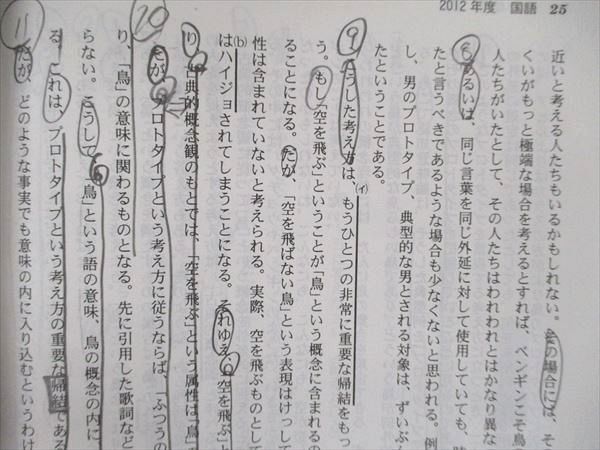 2012年度 国語 25
近いと考える人たちもいるかもしれない。その場合には、そ
くいがもっと極端な場合を考えるとすれば、ペンギンこそ鳥
人たちがいたとして、その人たちはわれわれとはかなり異な
8 あるいは、同じ言葉を同じ外延に対して使用していても、
たと言うべきであるような場合も少なくないと思われる。例
し、男のプロトタイプ、典型的な男とされる対象は、ずいぶん
たということである。
9 こうした考え方は、(イ)もうひとつの非常に重要な帰結をもっ
う。もし「空を飛ぶ」ということが「鳥」という概念に含まれるの
ることになる。だが、「空を飛ばない鳥」という表現はけっして
性は含まれていないと考えられる。実際、空を飛ぶものとして
は(b)ハイジョされてしまうことになる。それゆえ、「空を飛ぶ」と
り、古典的概念観のもとでは、「空を飛ぶ」という属性は「鳥」
10 だが、プロトタイプという考え方に従うならば、「ふつうの
り、「鳥」の意味に関わるものとなる。先に引用した歌詞など
らない。こうして、「鳥」という語の意味、鳥の概念の内に
る。これは、プロトタイプという考え方の重要な帰結である
11 だが、どのような事実でも意味の内に入り込むというわけ